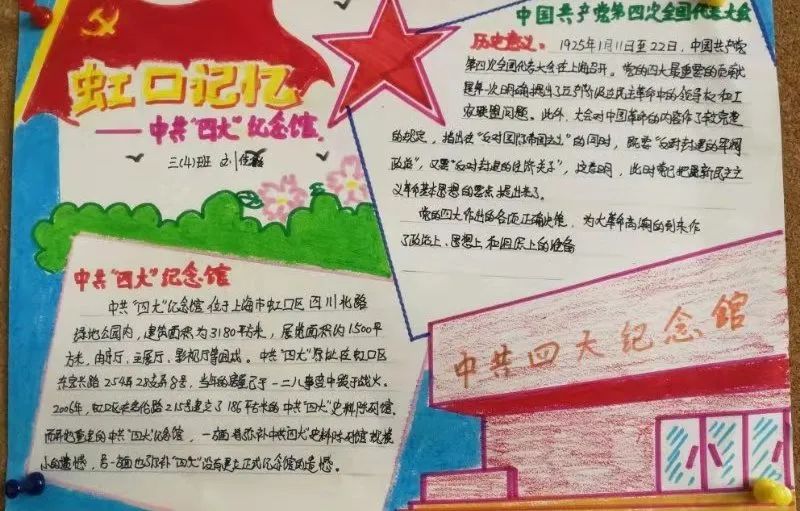 虹口记忆
——中共“四大”纪念馆
三(4)班
中国共产党第四次全国代表大会
历史意义： 1925年1月11日至22日，中国共产党
第四次全国代表大会在上海召开。党的四大最重要的贡献
是第一次明确提出了无产阶级在民主革命中的领导权和工
农联盟问题。此外，大会对中国革命的内容作了较完整
的规定，指出在“反对国际帝国主义”的同时，既要“反对封建的军阀
政治”，又要“反对封建的经济关系”，这表明，此时党已把新民主主
义革命基本思想的要点提出来了。
党的四大作出的各项正确决策，为大革命高潮的到来作
了政治上、思想上和组织上的准备
中共“四大”纪念馆
中共“四大”纪念馆位于上海市虹口区四川北路
绿地公园内，建筑面积为3180平方米，展览面积约1500平
方米，由序厅、主展厅、影视厅等组成。中共“四大”原址在虹口区
东宝兴路254弄28支弄8号，当年的房屋已于一二八事变中毁于战火。
2006年，虹口区在多伦路215号建立了186平方米的中共“四大”史料陈列馆，
而易地重建的中共“四大”纪念馆，一方面将弥补中共“四大”史料陈列馆规模
小的遗憾，另一方面也弥补“四大”没有建立正式纪念馆的遗憾。
中共四大纪念馆